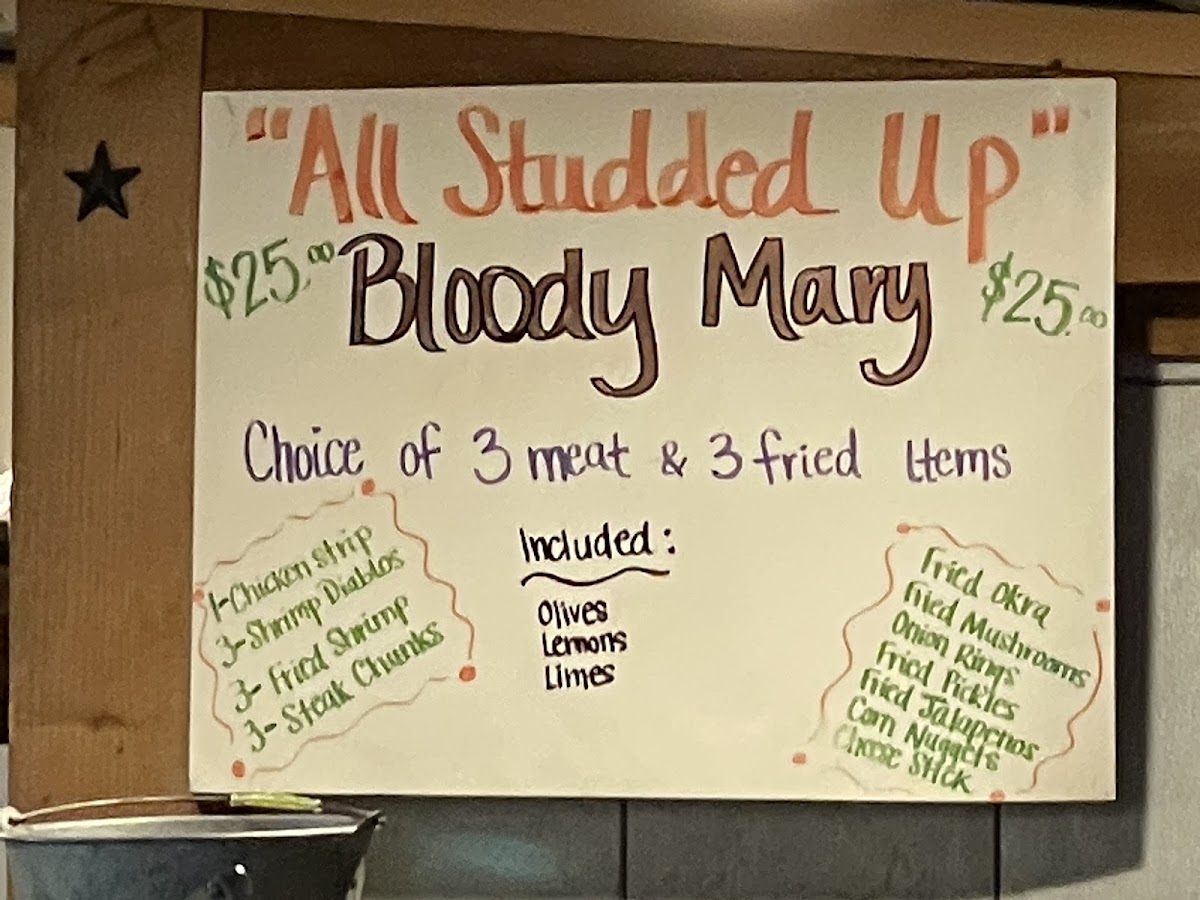 "All Studded Up"
$25.00 Bloody Mary $25.00
Choice of 3 meat & 3 fried Items
1-Chicken Strip
3-Shrimp Diablos
3- Fried Shrimp
3- Steak Chunks
Included:
Olives
Lemons
Limes
Fried Okra
Fried Mushrooms
Onion Rings
Fried Pickles
Fried Jalapenos
Corn Nuggets
Cheese Stick